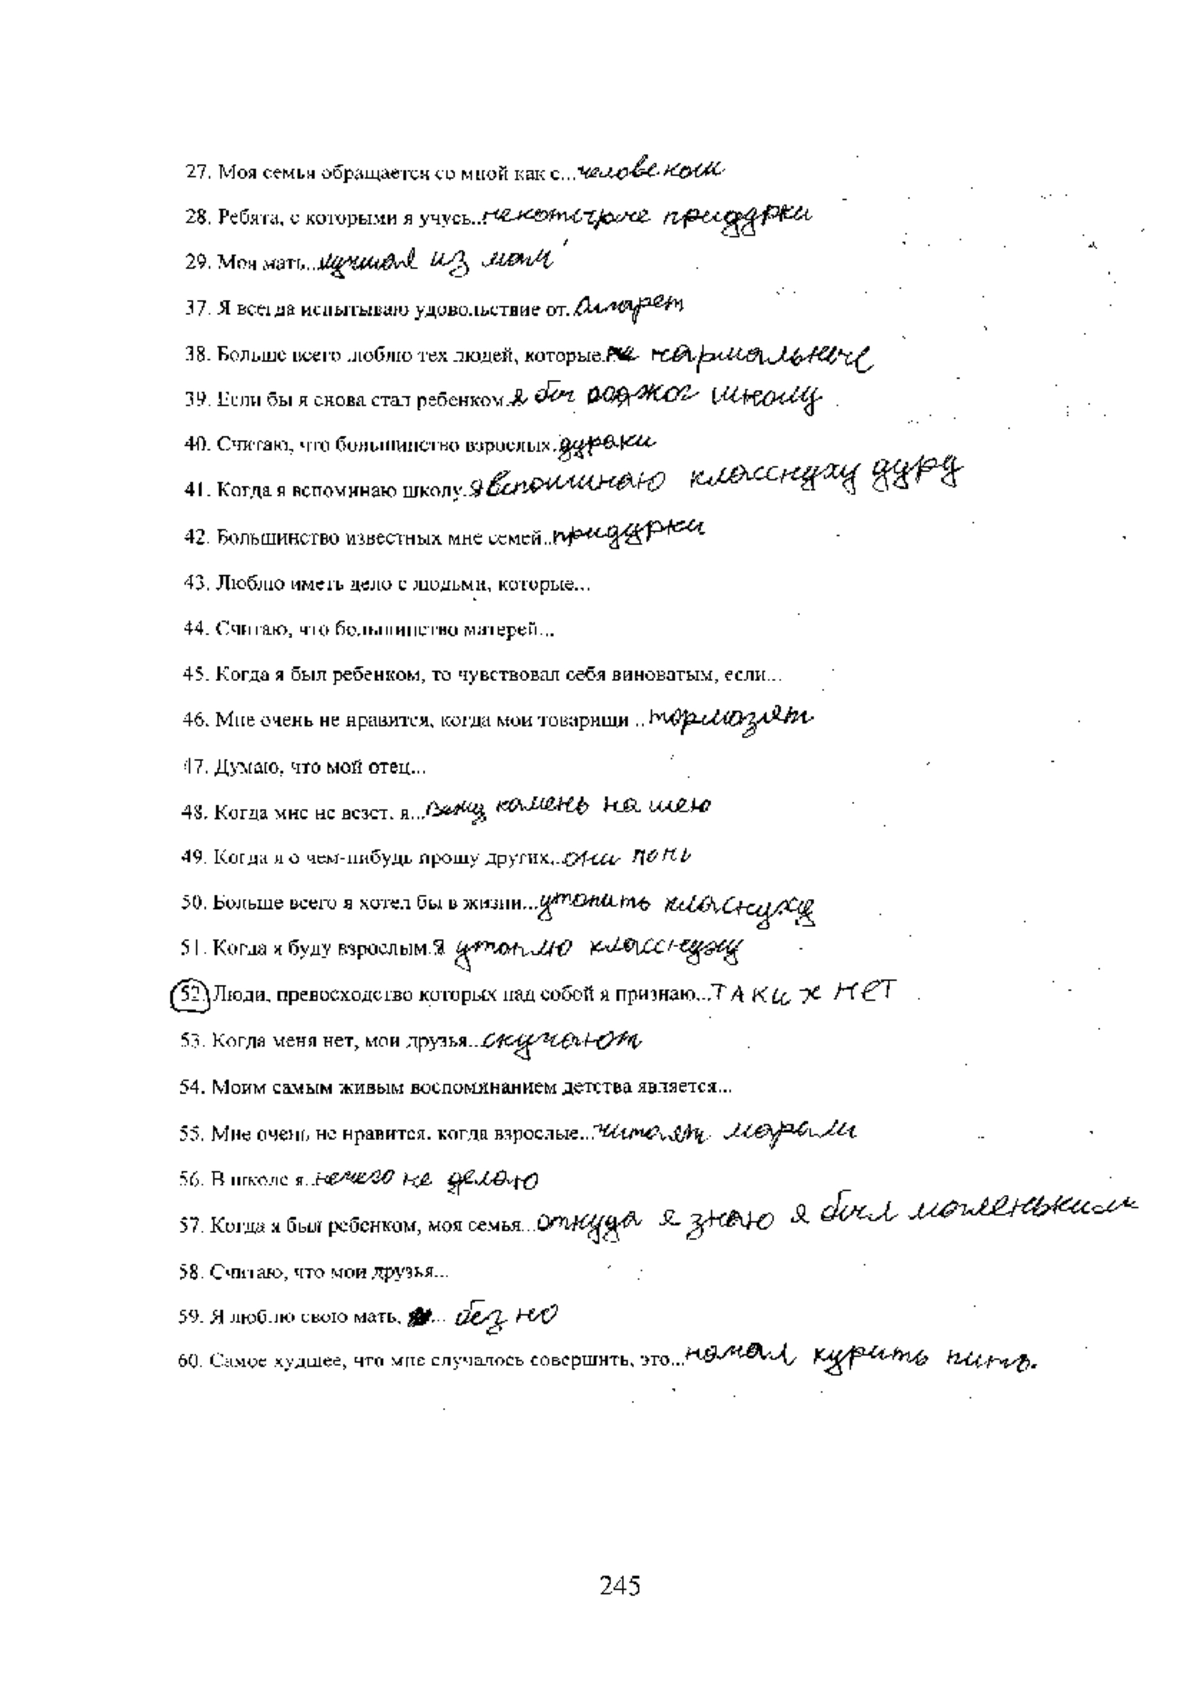 27. Моя семья обращается со мной как с...человеком
28. Ребята, с которыми я учусь...некоторые придурки
29. Моя мать...лучшая из мам
37. Я всегда испытываю удовольствие от.сигарет
38. Больше всего люблю тех людей, которые. нармальные
39. Если бы я снова стал ребенком.я бы поджог школу
40. Считаю, что большинство взрослых.дураки
41. Когда я вспоминаю школу.я вспоминаю класснуху дуру
42. Большинство известных мне семей..придурки
43. Люблю иметь дело с людьми, которые...
44. Считаю, что большинство матерей...
45. Когда я был ребенком, то чувствовал себя виноватым, если...
46. Мне очень не нравится, когда мои товарищи ..тормозят
47. Думаю, что мой отец...
48. Когда мне не везет, я...вяжу камень на шею
49. Когда я о чем-нибудь прошу других...они
50. Больше всего я хотел бы в жизни...утопить класнуху
51. Когда я буду взрослым.я утоплю класснуху
52. Люди, превосходство которых над собой я признаю...ТАКИХ НЕТ
53. Когда меня нет, мои друзья...скучают
54. Моим самым живым воспоминанием детства является...
55. Мне очень не нравится, когда взрослые...читают марали
56. В школе я..нечего не делаю
57. Когда я был ребенком, моя семья...откуда я знаю я был маленьким
58. Считаю, что мои друзья...
59. Я люблю свою мать, ... без но
60. Самое худшее, что мне случалось совершить, это...начал курить пить.
245